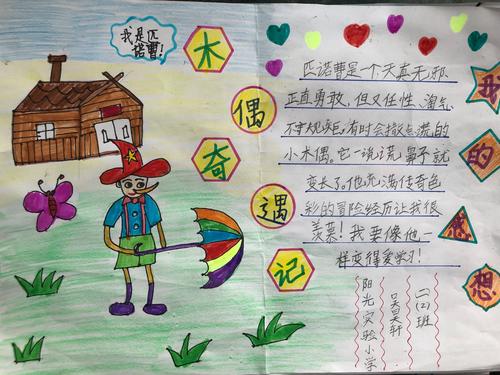 我是匹
诺曹!
木
偶
奇
遇
记
匹诺曹是一个天真无邪、
正直勇敢,但又任性、淘气
不守规矩,有时会撒点谎的
小木偶。它一说谎鼻子就
变长了。他充满传奇色
彩的冒险经历让我很
羡慕!我要像他一
样变得爱学习!
我
的
感
想
二(2)班
吴昊轩
阳光实验小学